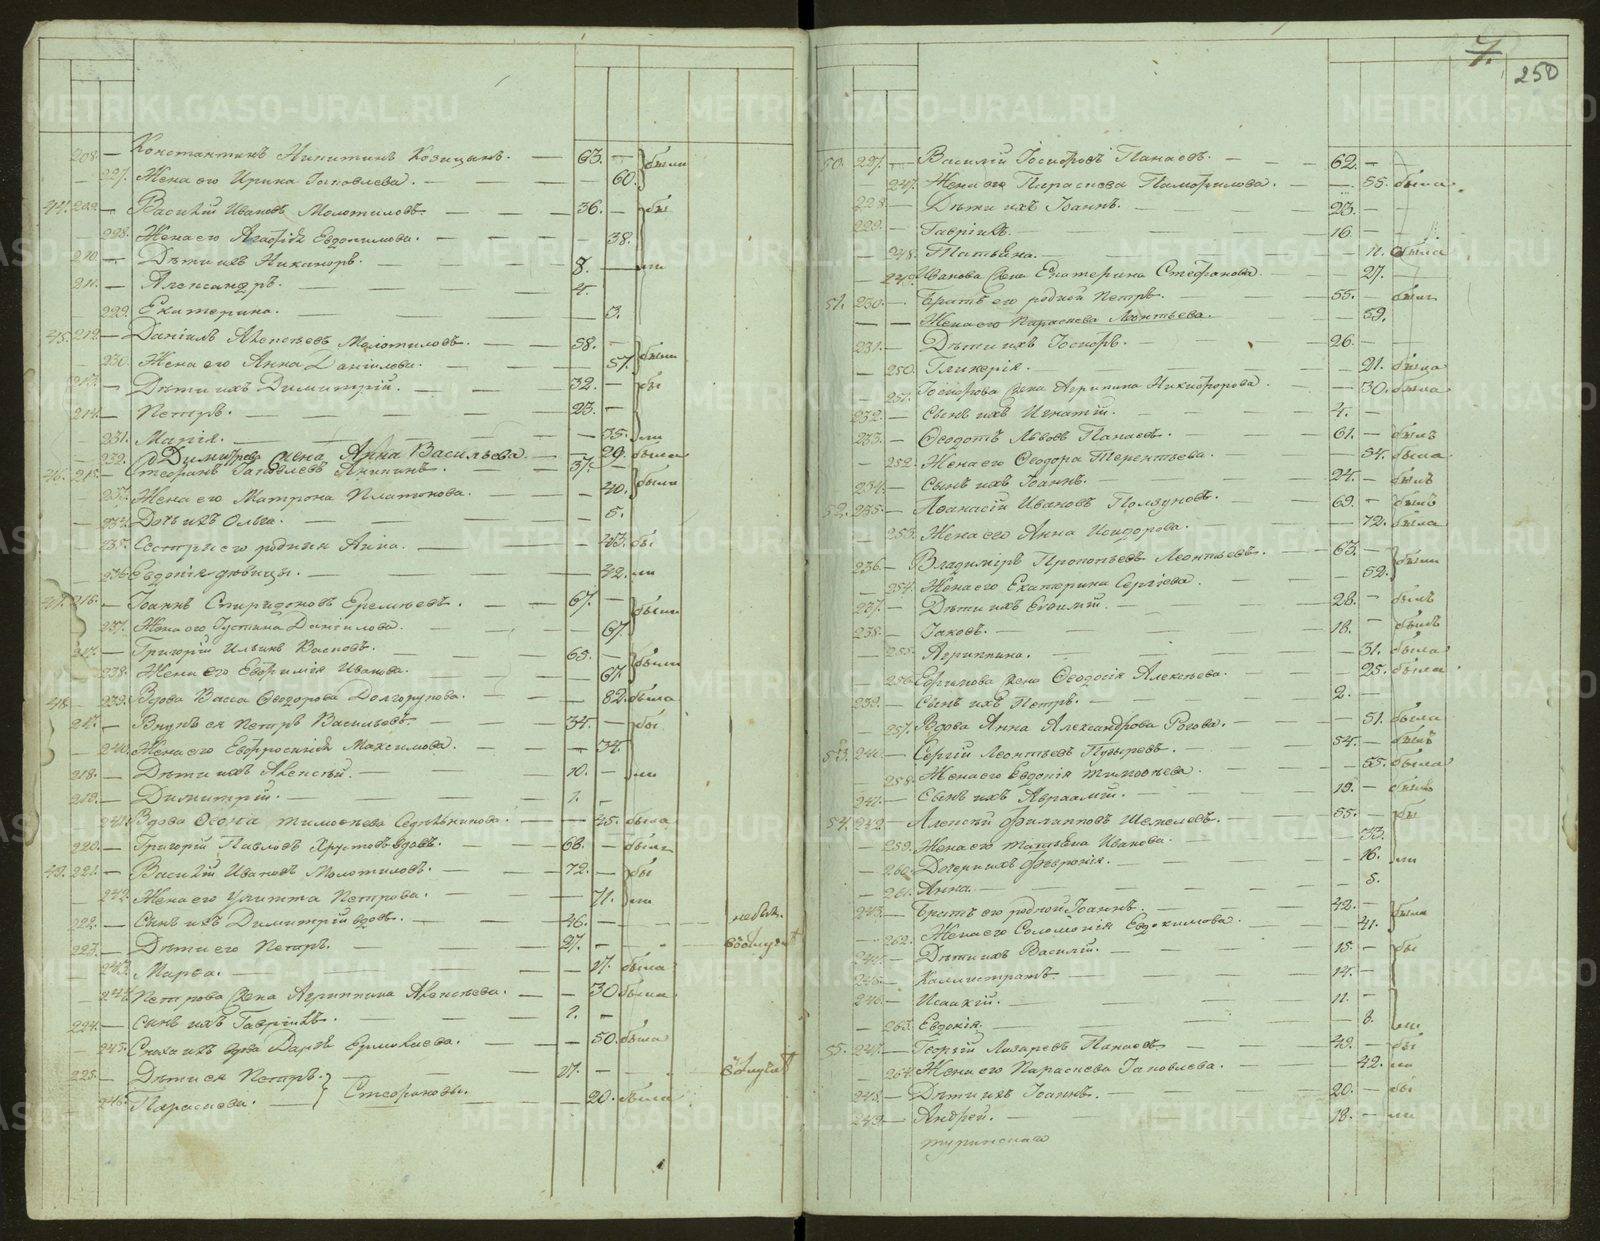 208. — Константинъ Никитинъ Козицынъ. — 63. — были
227. Жена его Ирина Іаковлева. — 60.
44. 209. — Василій Ивановъ Молотиловъ — 36. — бы
228. Жена его Агафія Евдокимова. — 38.
210. — Дѣти ихъ Никаноръ. — 8. — ли
211. — Александръ. — 4.
229. Екатерина. — 3.
45. 212. — Даніилъ Алексѣевъ Молотиловъ. — 58. — были
230. Жена его Анна Данилова. — 57.
213. — Дѣти ихъ Димитрій. — 32. — бы
214. — Петръ. — 23. —
231. Марія. — 35. ли
232. Димитрова жена Анна Васильева. — 29. была
46. 215. — Стефанъ Іаковлевъ — 37. — были
233. Жена его Матрона Платонова. — 40.
234. Дочь ихъ Ольга. — 5.
235. Сестры его родныя Анна. — 43. бы
236. Евдокія дѣвицы. — 42. ли
47. 216. — Іоаннъ Спиридоновъ Еремѣевъ. — 67. — были
237. Жена его Іустина Данилова. — 67.
217. — Григорій Ильинъ — 65. — были
238. Жена его Евфимія Иванова. — 67.
48. 239. Вдова Васса Ѳеодорова Долгорукова. — 82. была
217. — Внукъ ея Петръ Васильевъ — 34. — бы
240. Жена его Евфросинія Максимова. — 34.
218. — Дѣти ихъ Алексѣй. — 10. — ли
219. — Димитрій. — 1. —
241. Вдова Тимоѳеева — 45. была
220. — Григорій Павловъ вдовъ. — 68. — былъ
49. 221. — Василій Ивановъ Молотиловъ. — 72. — бы
242. Жена его Улитта Петрова. — 71. ли
222. — Сынъ ихъ Димитрій вдовъ. — 46. — не был.
223. — Дѣти его Петръ. — 27. —
243. Марѳа. — 17. была
244. Петрова жена Агриппина Алексѣева. — 30. была
224. — Сынъ ихъ Гавріилъ. — 2. —
245. Сноха ихъ вдова Дарья Ермолаева. — 50. была
225. — Дѣти ея Петръ. — 17. —
246. Параскева. } Стефановы. — 20. была
7.
250
50. 227. — Василій Іосифовъ Панаевъ. — 62. —
247. Жена его Параскева Памфилова. — 55. была
228. — Дѣти ихъ Іоаннъ. — 23. —
229. — Гавріилъ. — 16. —
248. Татьяна. — 11. была
249. Иванова жена Екатерина Стефанова. — 27.
51. 230. — Братъ его родной Петръ. — 55. — былъ
— Жена его Параскева Леонтьева. — 59.
231. — Дѣти ихъ Іосифъ. — 26. —
250. Гликерія. — 21. была
251. Іосифова жена Агрипина Никифорова. — 30. была
232. — Сынъ ихъ Игнатій. — 4. —
233. — Ѳеодотъ Львовъ Панаевъ. — 61. — былъ
252. Жена его Ѳеодора Терентьева. — 54. была
234. — Сынъ ихъ Іоаннъ. — 24. — былъ
52. 235. — Аѳанасій Ивановъ Ползуновъ. — 69. — былъ
253. Жена его Анна Исидорова. — 72. была
236. — Владиміръ Прокопьевъ Леонтьевъ. — 63. — были
254. Жена его Екатерина Сергіева. — 52.
237. — Дѣти ихъ Евѳимій. — 28. — былъ
238. — Іаковъ. — 18. — былъ
255. Агриппина. — 31. была
256. Ефимова жена Ѳеодосія Алексѣева. — 25. была
239. — Сынъ ихъ Петръ. — 2. —
257. Вдова Анна Александрова Рогова. — 51. была
53. 240. — Сергій Леонтьевъ Пузыревъ. — 54. — былъ
258. Жена его Евдокія Тимоѳеева. — 55. была
241. — Сынъ ихъ Авраамій. — 19. — былъ
54. 242. — Алексѣй Филипповъ Шемелевъ. — 55. — бы
259. Жена его Татьяна Иванова. — 53.
260. Дочери ихъ Февронія. — 16. ли
261. Анна. — 5.
243. — Братъ его родной Іоаннъ. — 42. — были
262. Жена его Соломонія Евдокимова. — 41.
244. — Дѣти ихъ Василій. — 15. — бы
245. — Каллистратъ — 14. —
246. — Исаакій. — 11. —
263. Евдокія. — 8. ли
55. 247. — Георгій Лазаревъ Панаевъ — 49. — бы
264. Жена его Параскева Іаковлева. — 42. ли
248. — Дѣти ихъ Іоаннъ. — 20. — бы
249. — Андрей. — 18. — ли
туринскаго